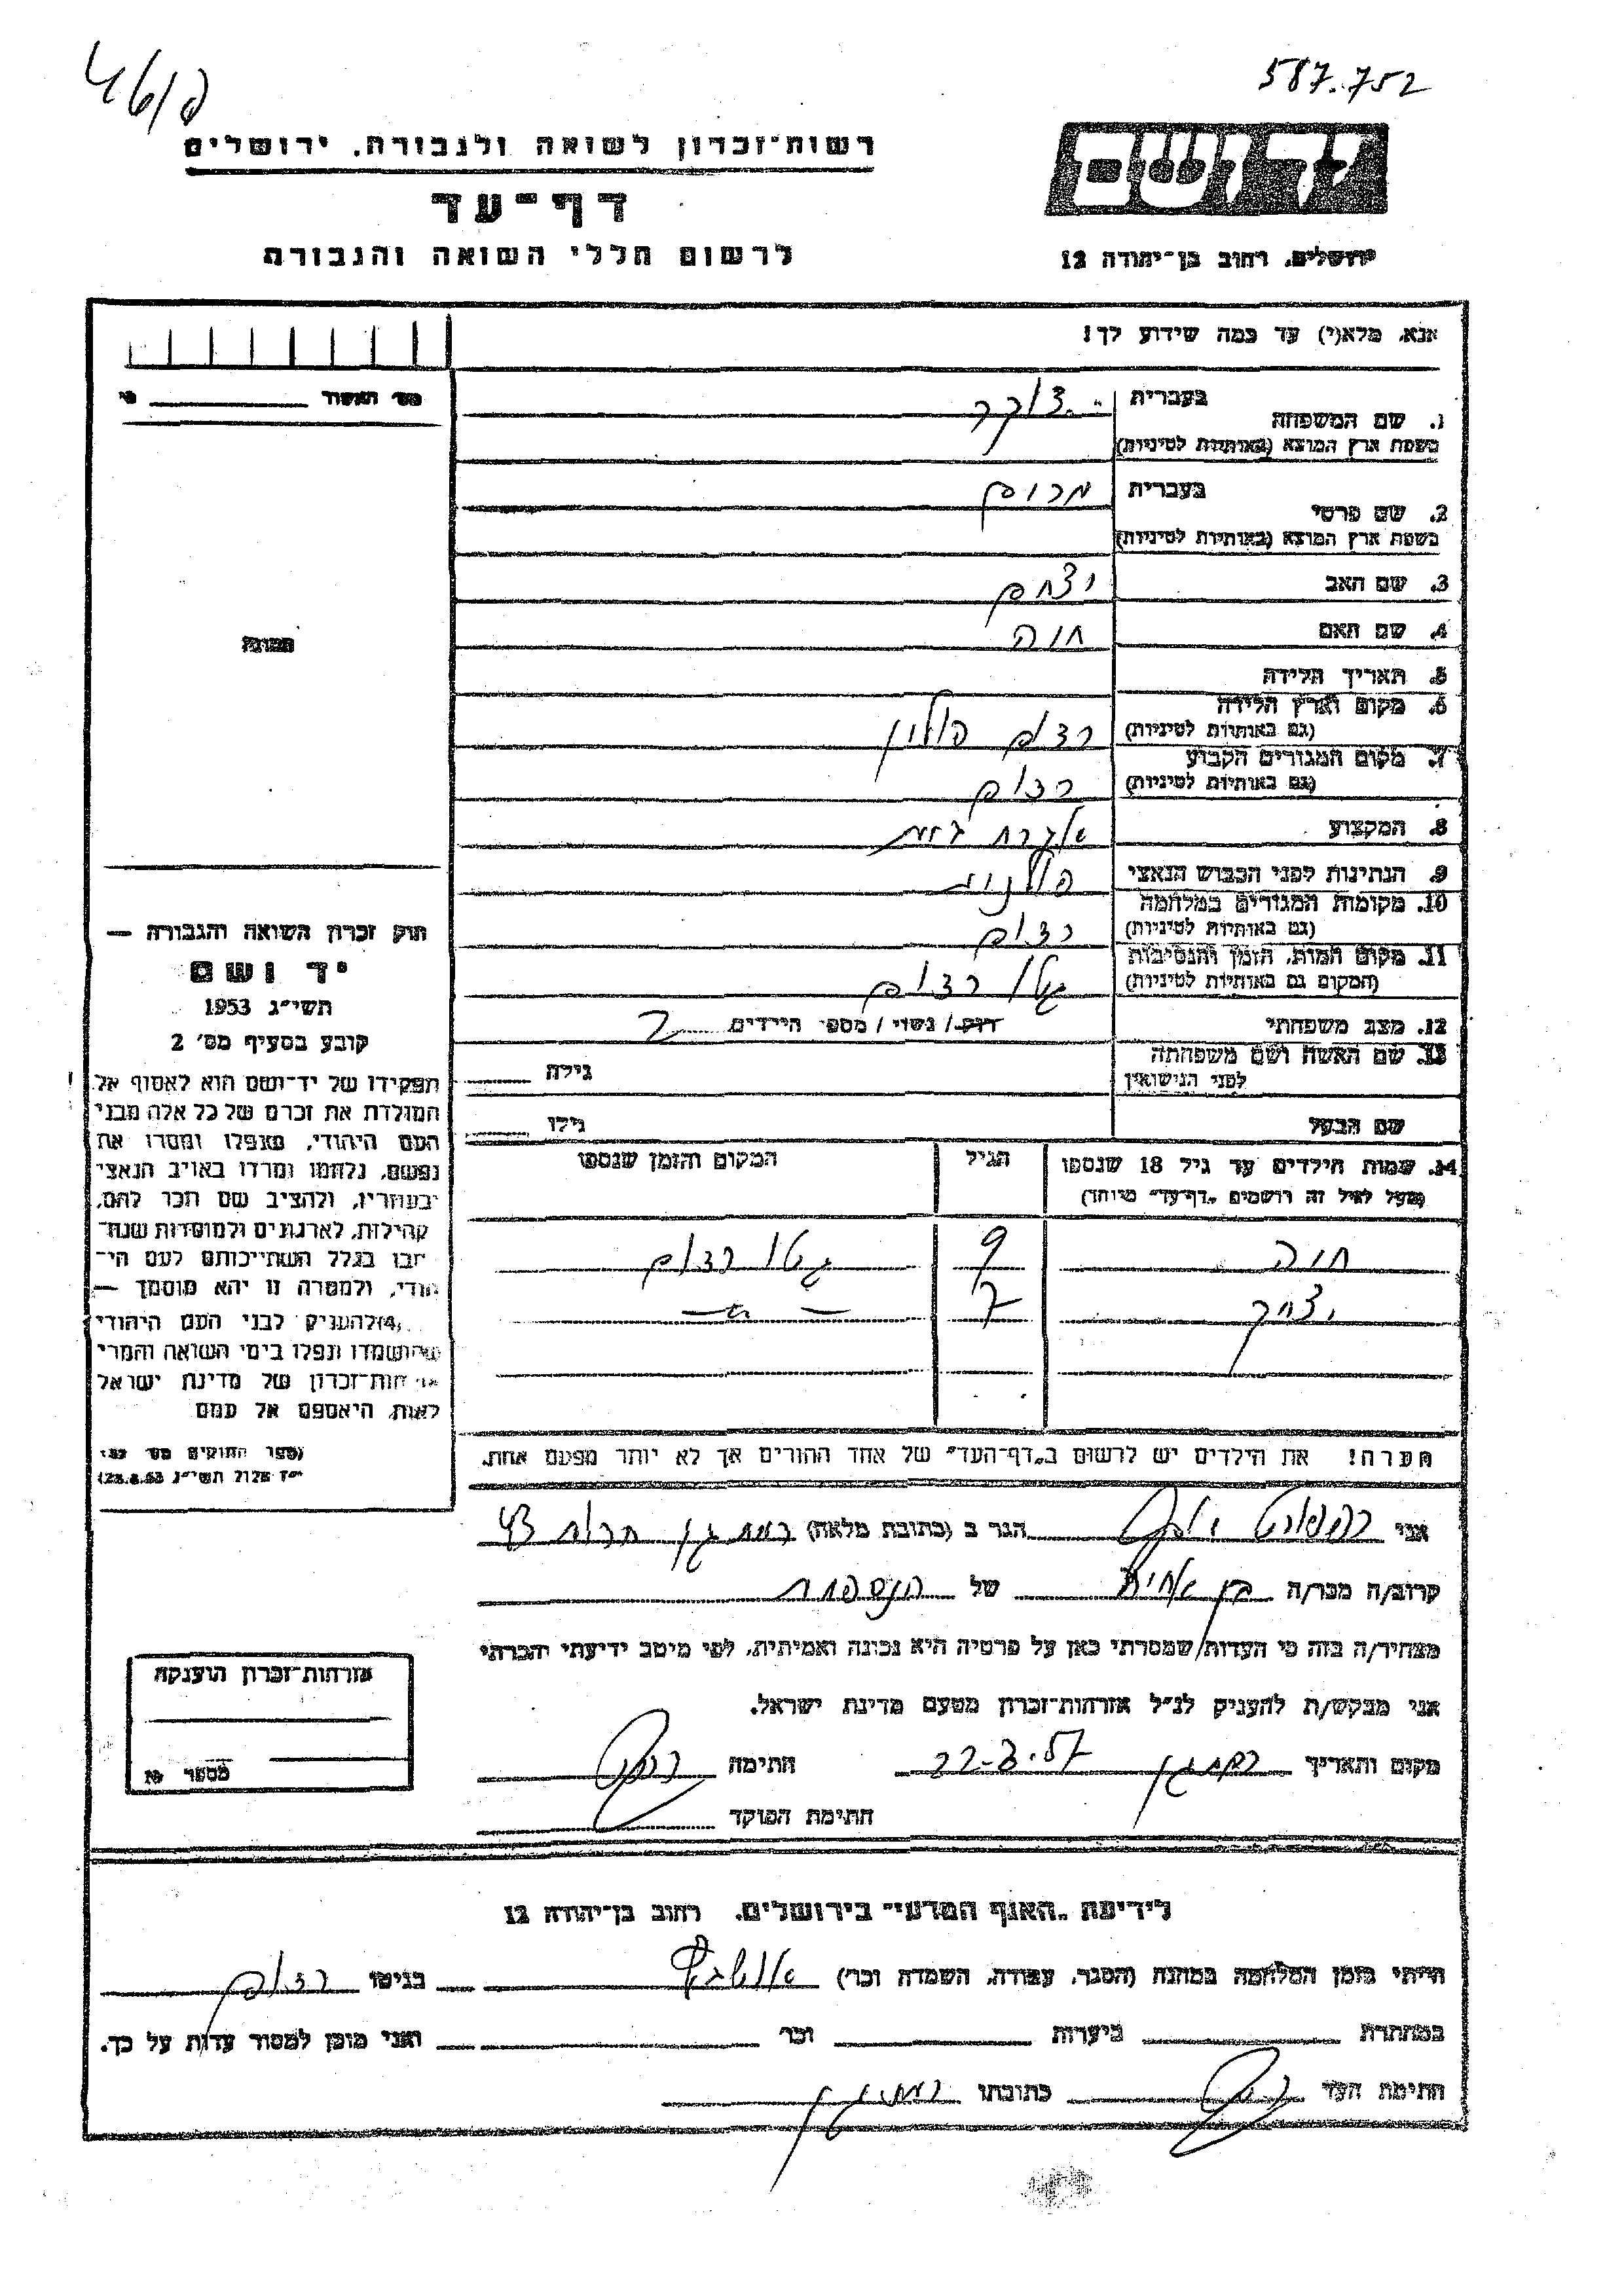 587.752
רשות־זכרון לשואה ולגבורה, ירושלים
דף־עד
לרשום חללי השואה והגבורה
יד ושם
ירושלים, רחוב בן־יהודה 12
אנא, מלא(י) עד כמה שידוע לך!
מס׳ האשור
1. שם המשפחה
בעברית
צוקר
בשפת ארץ המוצא (באותיות לטיניות)
2. שם פרטי
בעברית
בשפת ארץ המוצא (באותיות לטיניות)
3. שם האב
4. שם האם חוה
5. תאריך הלידה
6. מקום וארץ הלידה
(גם באותיות לטיניות) רדום פולין
7. מקום המגורים הקבוע
(גם באותיות לטיניות) רדום
8. המקצוע
9. הנתינות לפני הכבוש הנאצי פולנית
10. מקומות המגורים במלחמה
(גם באותיות לטיניות) רדום
11. מקום המות, הזמן והנסיבות
(המקום גם באותיות לטיניות) גטו רדום
12. מצב משפחתי רוק/ נשוי/ מספר הילדים 2
13. שם האשה ושם משפחתה
לפני הנישואין
גילה
שם הבעל גילו
14. שמות הילדים עד גיל 18 שנספו
(מעל לגיל זה רושמים „דף־עד״ מיוחד)
הגיל
המקום והזמן שנספו
חוה 9 גטו רדום
יצחק 7 — " —
הערה! את הילדים יש לרשום ב„דף־העד״ של אחד ההורים אך לא יותר מפעם אחת.
תמונה
חוק זכרון השואה והגבורה —
יד ושם
תשי״ג 1953
קובע בסעיף מס׳ 2
תפקידו של יד־ושם הוא לאסוף אל
המולדת את זכרם של כל אלה מבני
העם היהודי, שנפלו ומסרו את
נפשם, נלחמו ומרדו באויב הנאצי
ובעוזריו, ולהציב שם וזכר להם,
לקהילות, לארגונים ולמוסדות שנח־
רבו בגלל השתייכותם לעם הי־
הודי, ולמטרה זו יהא מוסמך —
(4) להעניק לבני העם היהודי
שהושמדו ונפלו בימי השואה והמרי
אזרחות־זכרון של מדינת ישראל
לאות היאספם אל עמם
(ספר החוקים מס׳ 132
י״ז אלול תשי״ג 28.8.53)
אני יוסף הגר ב (כתובת מלאה) רמת גן 43
קרוב/ה מכר/ה בן אחות של הנספה
מצהיר/ה בזה כי העדות שמסרתי כאן על פרטיה היא נכונה ואמיתית, לפי מיטב ידיעתי והכרתי
אני מבקש/ת להעניק לנ״ל אזרחות־זכרון מטעם מדינת ישראל.
מקום ותאריך רמת גן 22-3.57 חתימה
חתימת הפוקד
אזרחות־זכרון הוענקה
מספר
לידיעת „האגף המדעי״ בירושלים, רחוב בן־יהודה 12
הייתי בזמן המלחמה במחנה (הסגר, עבודה, השמדה וכו׳) בגיטו רדום
במחתרת ביערות וכו׳ ואני מוכן למסור עדות על כך.
חתימת העד כתובתו רמת גן